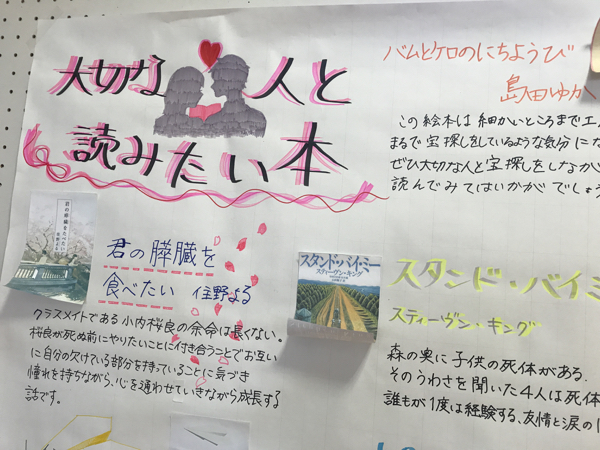 大切な人と
読みたい本
バムとケロのにちようび
島田ゆか
この絵本は細かいところまで工
まるで宝探しをしているような気分にな
ぜひ大切な人と宝探しをしなが
読んでみてはいかがでしょう
君の膵臓をたべたい
住野よる
君の膵臓を
食べたい 住野よる
クラスメイトである小内桜良の余命は長くない。
桜良が死ぬ前にやりたいことに付き合うことでお互い
に自分の欠けている部分を持っていることに気づき
憧れを持ちながら、心を通わせていきながら成長する
話です。
スタンド・バイ・ミー
スティーヴン・キング
スタンド・バイ・ミ
スティーヴン・キング
森の奥に子供の死体がある。
そのうわさを聞いた4人は死体
誰もが1度は経験する、友情と涙の